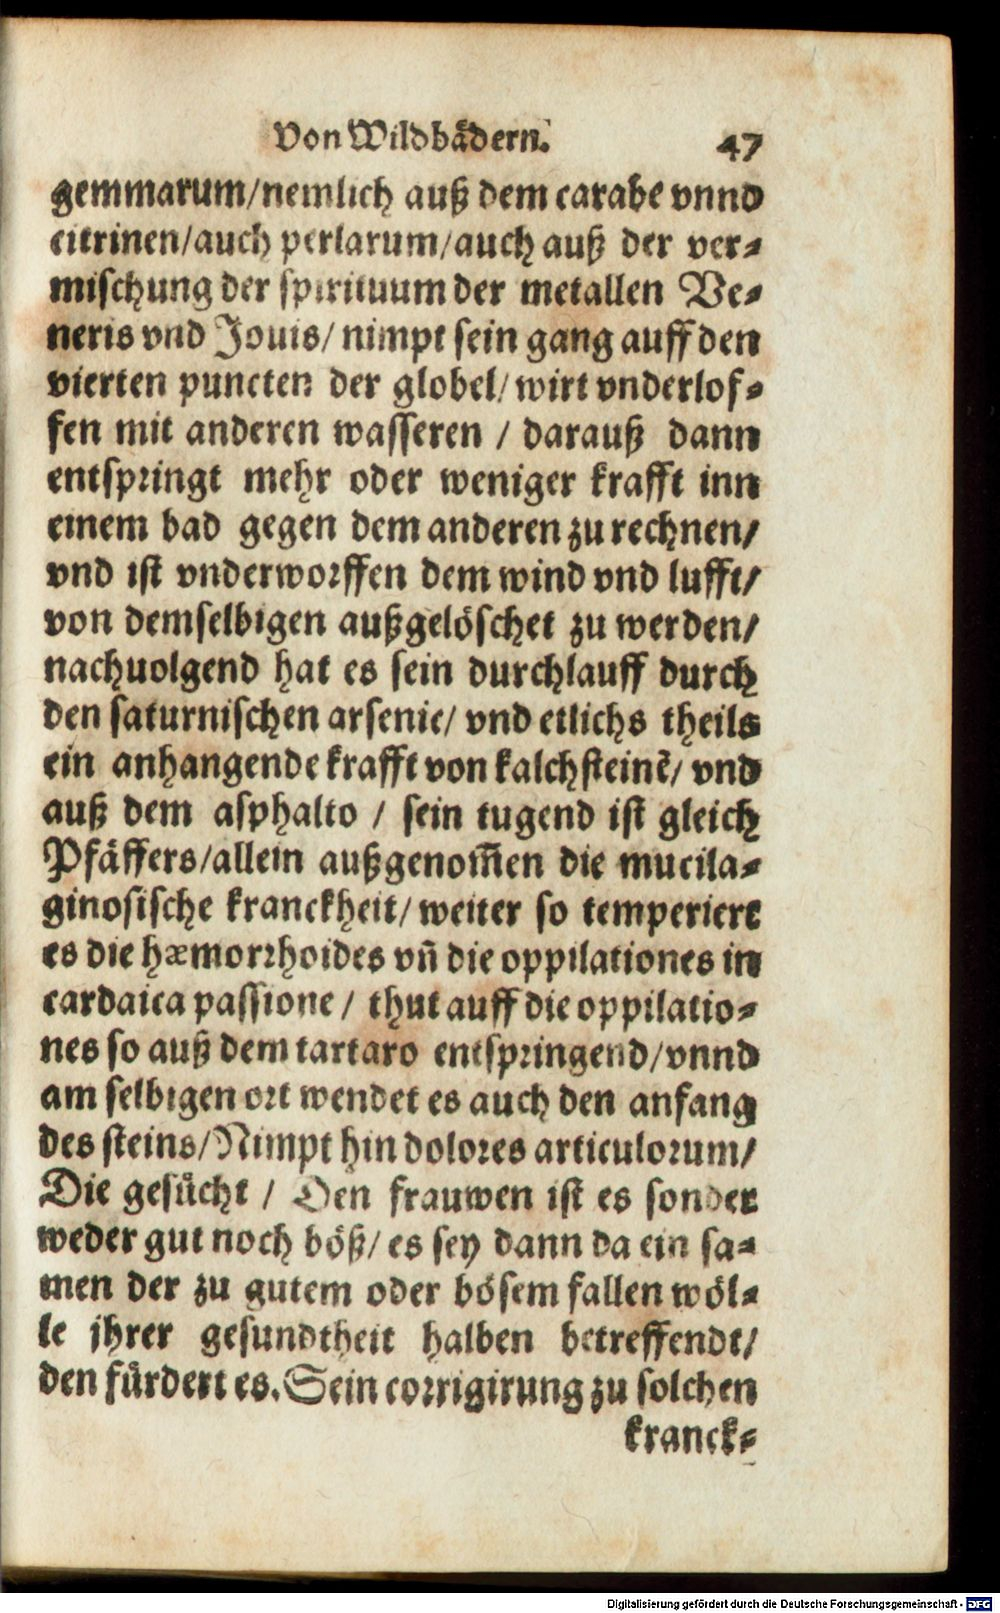 Von Wildbädern. 47
gemmarum/nemlich auß dem carabe vnnd
citrinen/auch perlarum/auch auß der ver-
mischung der spirituum der metallen Ve-
neris vnd Jouis/ nimpt sein gang auff den
vierten puncten der globel/ wirt vnderlof-
fen mit anderen wasseren / darauß dann
entspringt mehr oder weniger krafft inn
einem bad gegen dem anderen zu rechnen/
vnd ist vnderworffen dem wind vnd lufft/
von demselbigen außgelöschet zu werden/
nachuolgend hat es sein durchlauff durch
den saturnischen arsenic/ vnd etlichs theils
ein anhangende krafft von kalchsteinẽ/ vnd
auß dem asphalto / sein tugend ist gleich
Pfäffers/allein außgenom̃en die mucila-
ginosische kranckheit/ weiter so temperiert
es die hæmorrhoides vñ die oppilationes in
cardaica passione / thut auff die oppilatio-
nes so auß dem tartaro entspringend/vnnd
am selbigen ort wendet es auch den anfang
des steins/Nimpt hin dolores articulorum/
Die gesücht / Den frauwen ist es sonder
weder gut noch böß/ es sey dann da ein sa-
men der zu gutem oder bösem fallen wöl-
le jhrer gesundtheit halben betreffendt/
den fürdert es. Sein corrigirung zu solchen
kranck-
Digitalisierung gefördert durch die Deutsche Forschungsgemeinschaft - DFG